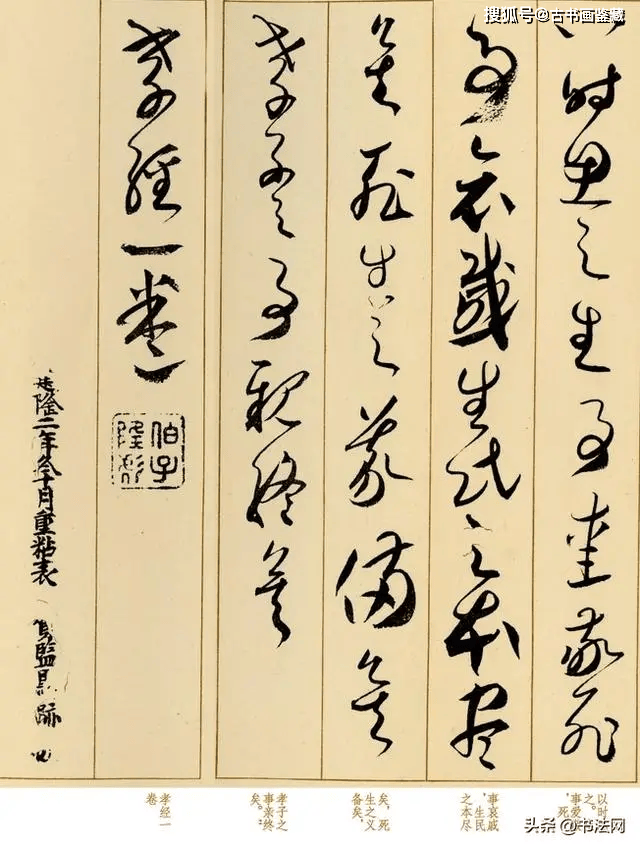 搜狐号@古书画鉴藏
以時思之生事愛敬死
事哀慼生民之本盡
矣死生之義備矣
孝子之事親終矣
孝經一卷
建隆二年冬十月重粘表 賀監墨跡
以时
之。
事爱
，死
事哀戚
，生民
之本尽
矣，死
生之义
备矣，
孝子之
事亲终
矣。
孝经一
卷
头条@书法网